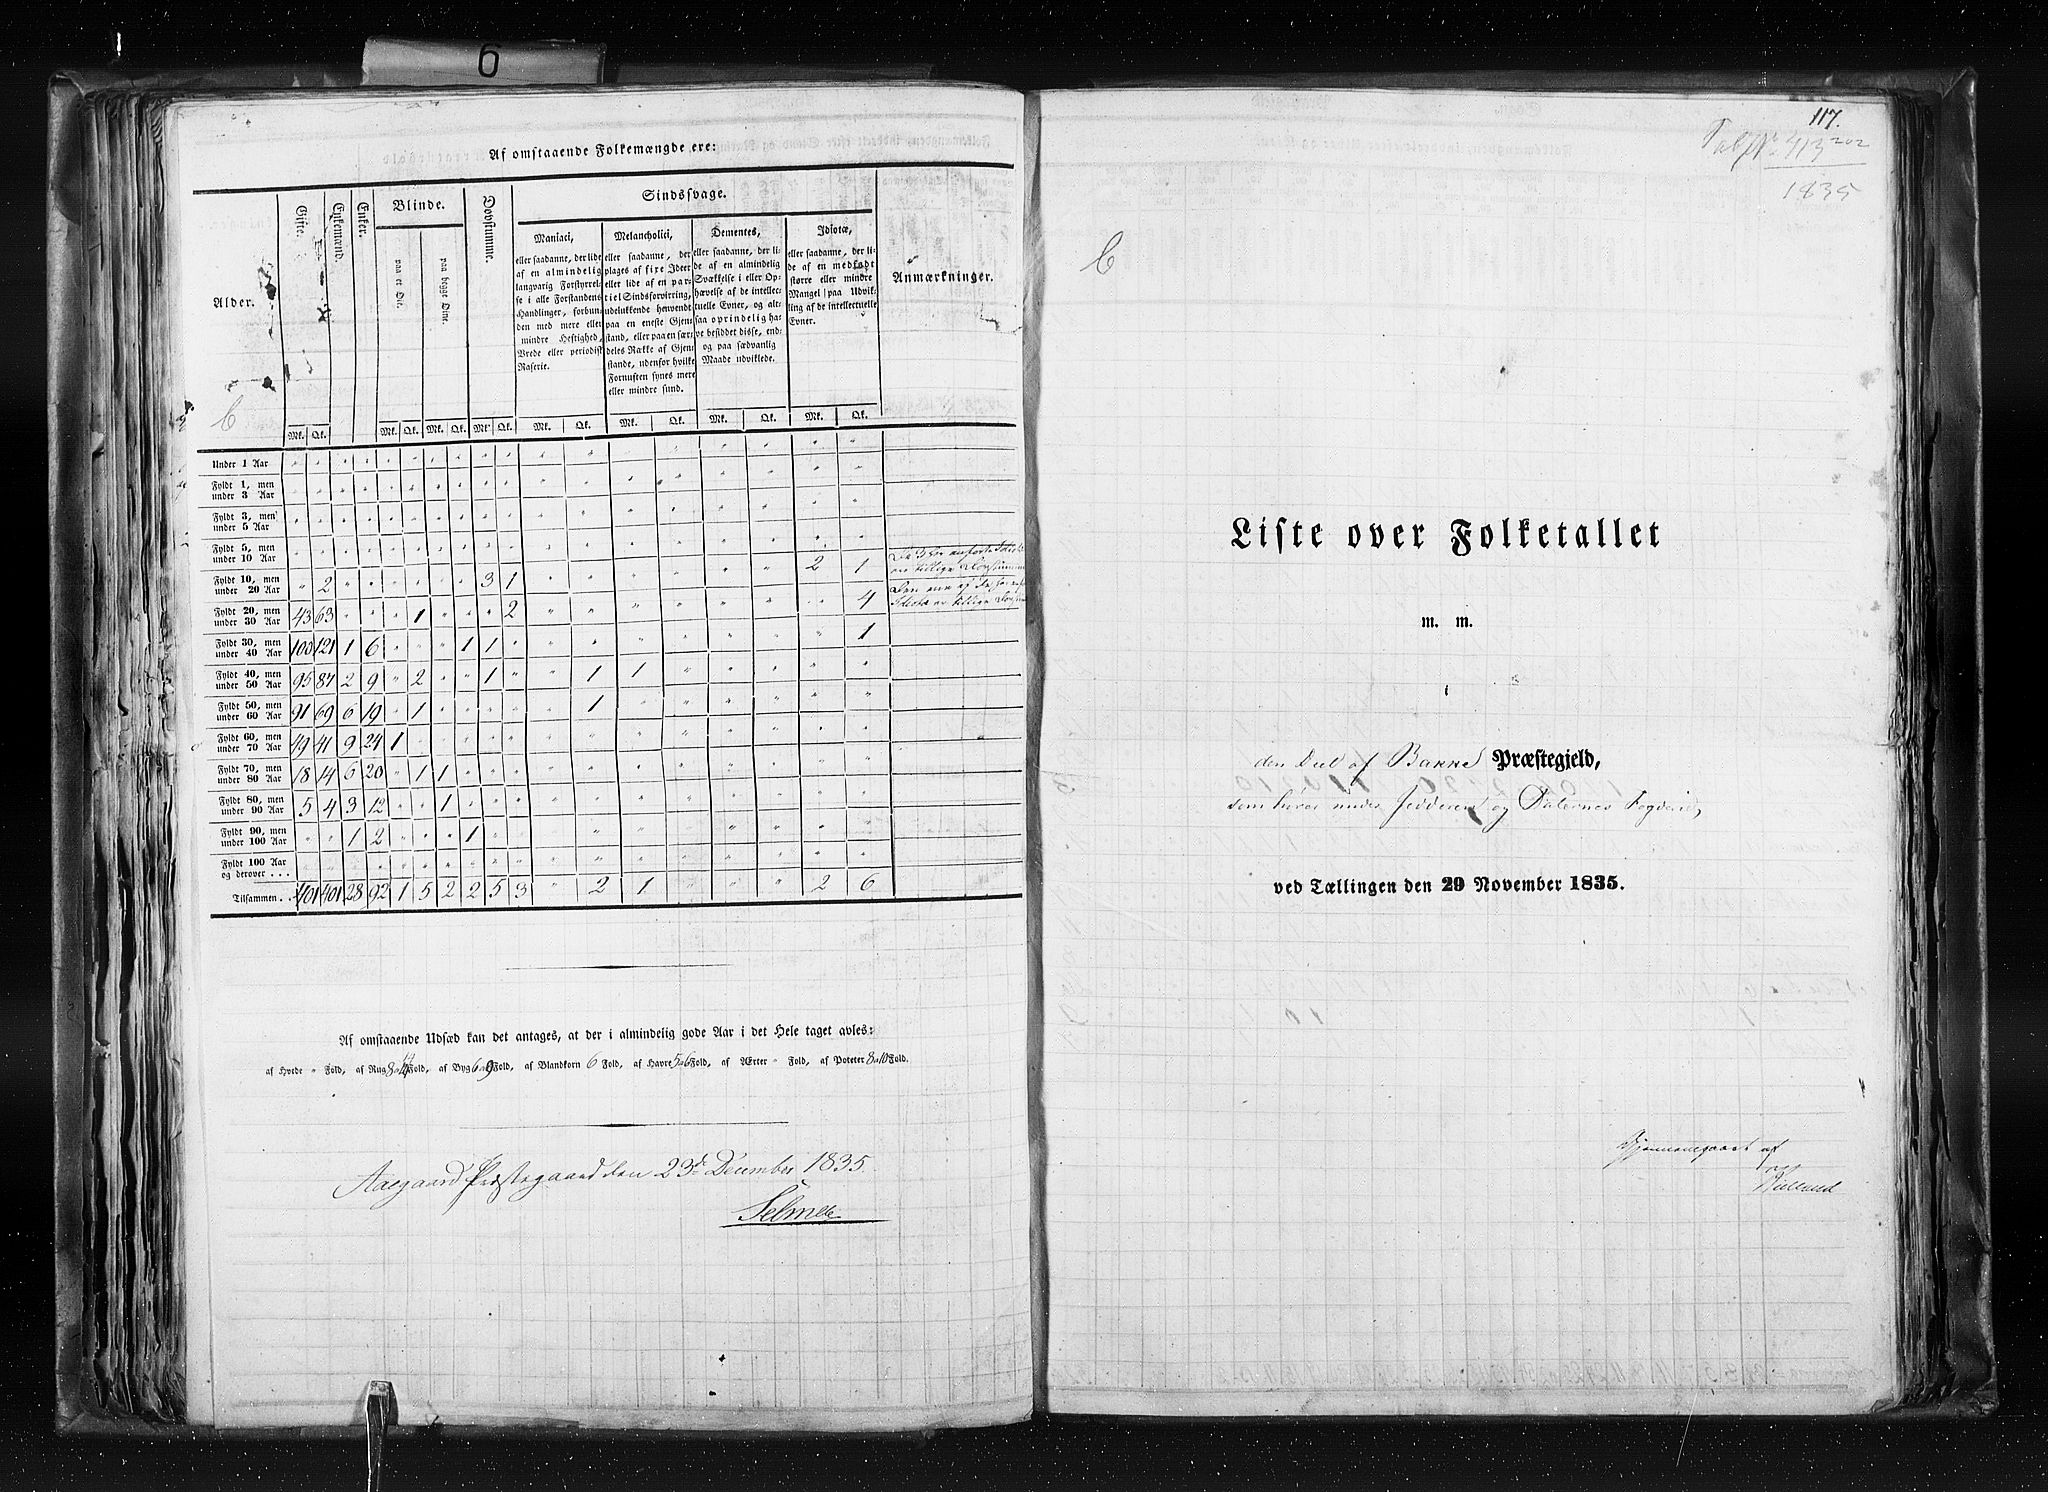 6
Af omstaaende Folkemængde ere:
Alder.
Gifte.
Enkemænd.
Enker.
Blinde.
paa et Øie.
paa begge Øine.
Døvstumme.
Sindssvage.
Maniaci,
eller saadanne, der lide
af en almindelig
langvarig Forstyrrel-
se i alle Forstandens
Handlinger, forbun-
den med mere eller
mindre Heftighed,
Vrede eller periodisk
Raserie.
Melancholici,
eller saadanne, der
plages af fixe Ideer
eller lide af en par-
tiel Sindsforvirring,
udelukkende henvendt
paa en eneste Gjen-
stand, eller paa en sær-
deles Række af Gjen-
stande, udenfor hvilke
Fornuften synes mere
eller mindre sund.
Dementes,
eller saadanne, der li-
de af en almindelig
Svækkelse i eller Op-
hævelse af de intellec-
tuelle Evner, og alt-
saa oprindelig ha-
ve besiddet disse, end-
og paa sædvanlig
Maade udviklede.
Idiotæ,
eller saadanne, der li-
de af en medfødt
større eller mindre
Mangel paa Udvik-
ling af de intellectuelle
Evner.
Anmærkninger.
C
Mk. Qk. Mk. Qk. Mk. Qk. Mk. Qk. Mk. Qk. Mk. Qk. Mk. Qk. Mk. Qk.
Under 1 Aar " " " " " " " " " " " " " " " " " "
Fyldt 1, men under 3 Aar " " " " " " " " " " " " " " " " " "
Fyldt 3, men under 5 Aar " " " " " " " " " " " " " " " " " "
Fyldt 5, men under 10 Aar " " " " " " " " " " " " " " " " " "
Fyldt 10, men under 20 Aar " 2 " " " " " " 3 1 " " " " " " 2 1
Fyldt 20, men under 30 Aar 43 63 " " " 1 " " " 2 " " " " " " " 4
Fyldt 30, men under 40 Aar 100 121 1 6 " " " 1 1 " " " " " " " " 1
Fyldt 40, men under 50 Aar 95 87 2 9 " 2 " " 1 " " 1 1 " " " " "
Fyldt 50, men under 60 Aar 91 69 6 19 " 1 " " " " " 1 " " " " " "
Fyldt 60, men under 70 Aar 49 41 9 24 1 " " " " " " " " " " " " "
Fyldt 70, men under 80 Aar 18 14 6 20 " 1 1 " " " " " " " " " " "
Fyldt 80, men under 90 Aar 5 4 3 12 " " 1 " " " " " " " " " " "
Fyldt 90, men under 100 Aar " " 1 2 " " " 1 " " " " " " " " " "
Fyldt 100 Aar og derover . . . " " " " " " " " " " " " " " " " " "
Tilsammen . . 401 401 28 92 1 5 2 2 5 3 " 2 1 " " " 2 6
Af omstaaende Udsæd kan det antages, at der i almindelig gode Aar i det Hele taget avles:
af Hvede " Fold, af Rug 8 a 14 Fold, af Byg 6 a 9 Fold, af Blandkorn 6 Fold, af Havre 5 a 6 Fold, af Ærter " Fold, af Poteter 8 a 10 Fold.
Aaegaard Præstegaard den 23d December 1835.
Selmer
117.
202
Tab N. 413
1835
C
Liste over Folketallet
m. m.
i
den Deel af Bakke Præstegjeld,
som hører under Jedderens og Dalernes Fogderie,
ved Tællingen den 29 November 1835.
Gjennemgaaet af
Kielland